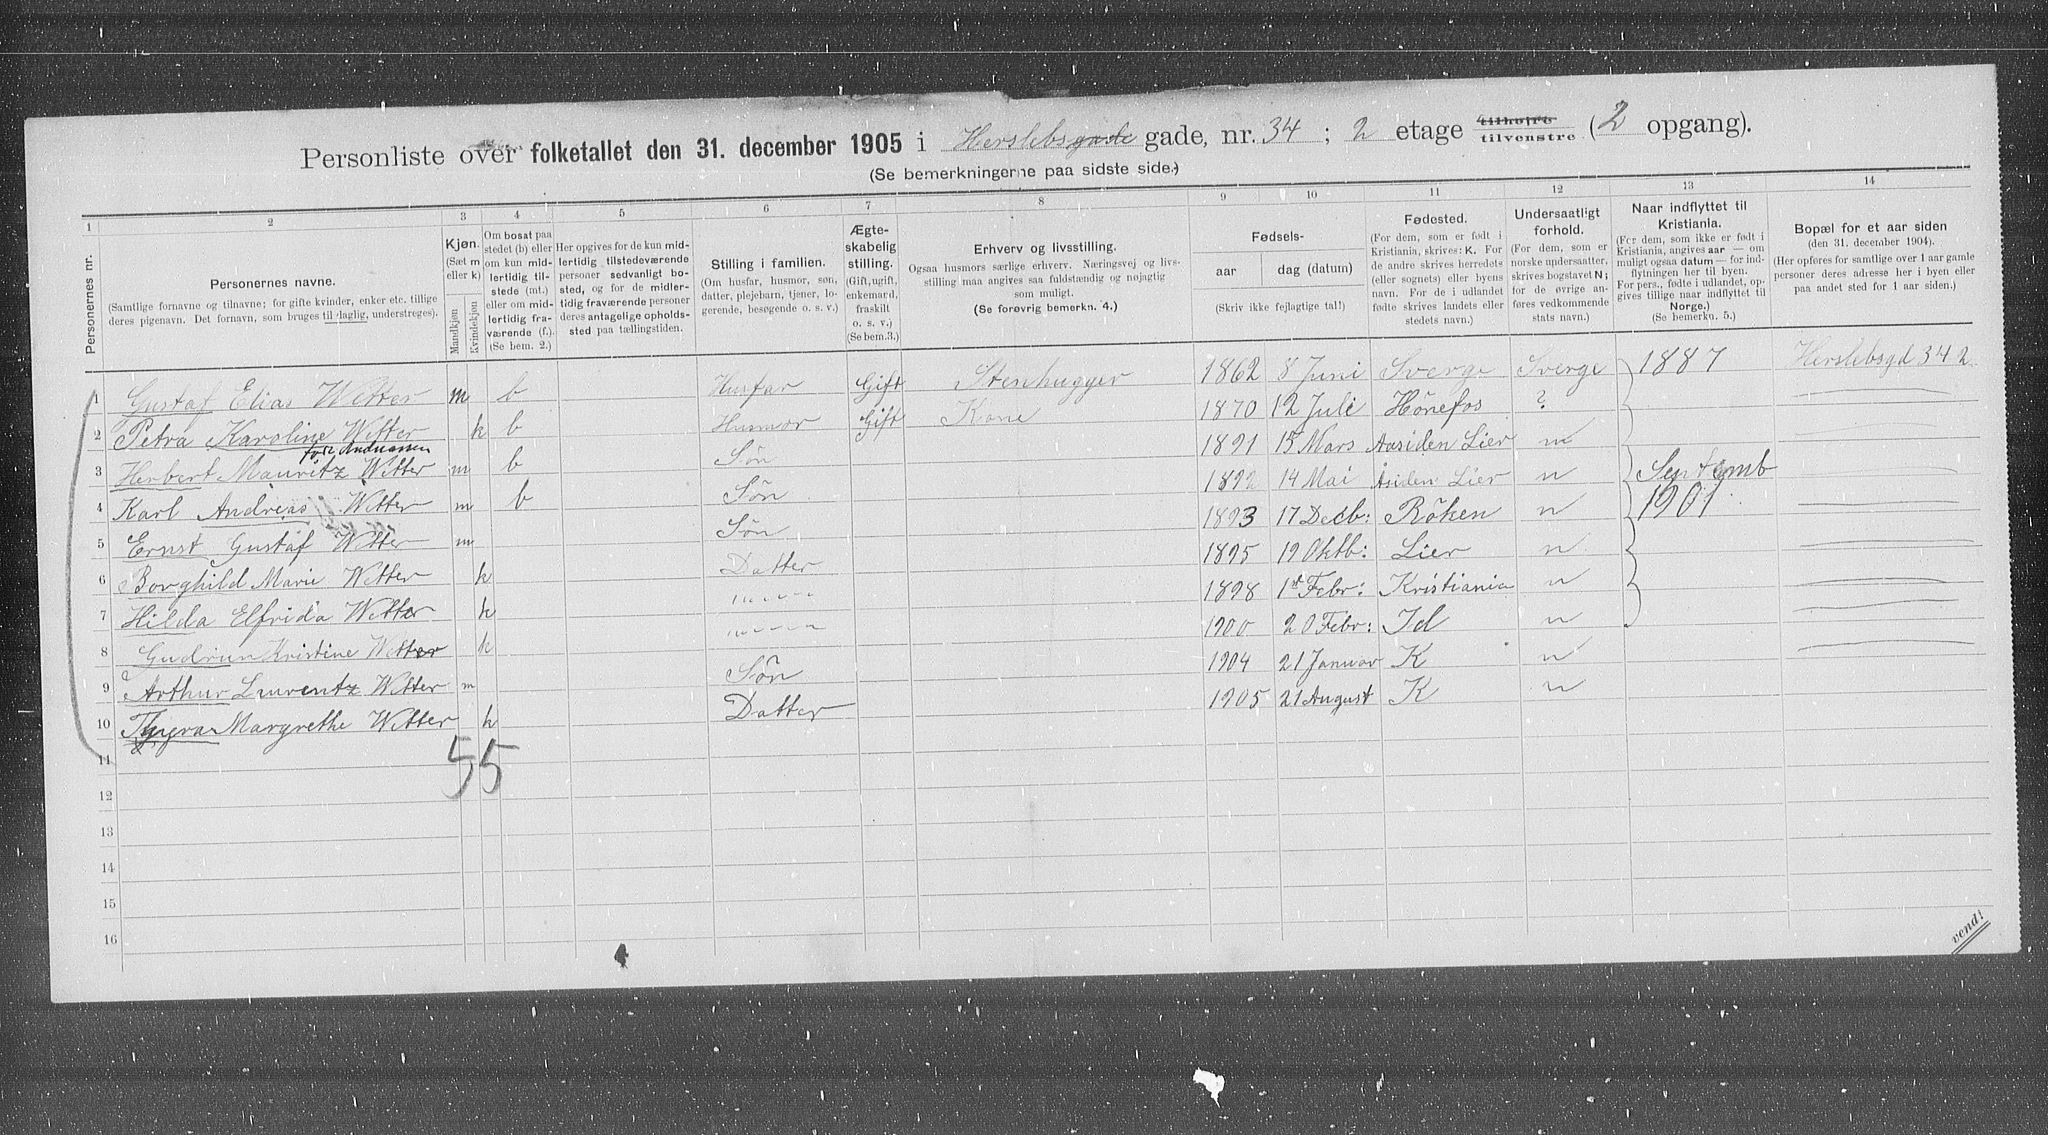 Personliste over folketallet den 31. december 1905 i Herslebsgade gade, nr. 34 ; 2 etage tilhøjre tilvenstre ( 2 opgang).
(Se bemerkningerne paa sidste side.)
1 2 3 4 5 6 7 8 9 10 11 12 13 14
Personernes nr.
Personernes navne.
(Samtlige fornavne og tilnavne; for gifte kvinder, enker etc. tillige
deres pigenavn. Det fornavn, som bruges til daglig, understreges).
Kjøn.
(Sæt m
eller k)
Mandkjøn
Kvindekjøn
Om bosat paa
stedet (b) eller
om kun mid-
lertidig til-
stede (mt.)
eller om mid-
lertidig fra-
værende (f.).
(Se bem. 2.)
Her opgives for de kun mid-
lertidig tilstedeværende
personer sedvanligt bo-
sted, og for de midler-
tidig fraværende personer
deres antagelige opholds-
sted paa tællingstiden.
Stilling i familien.
(Om husfar, husmor, søn,
datter, plejebarn, tjener, lo-
gerende, besøgende o. s. v.)
Ægte-
skabelig
stilling.
(Gift, ugift,
enkemand,
fraskilt
o. s. v.)
(Se bem.3.)
Erhverv og livsstilling.
Ogsaa husmors særlige erhverv. Næringsvej og livs-
stilling maa angives saa fuldstændig og nøjagtig
som muligt.
(Se forøvrig bemerkn. 4.)
Fødsels-
aar
dag (datum)
(Skriv ikke fejlagtige tal!)
Fødested.
(For dem, som er født i
Kristiania, skrives: K. For
de andre skrives herredets
(eller sognets) eller byens
navn. For de i udlandet
fødte skrives landets eller
stedets navn.)
Undersaatligt
forhold.
(For dem, som er
norske undersatter,
skrives bogstavet N;
for de øvrige an-
føres vedkommende
stats navn.)
Naar indflyttet til
Kristiania.
(For dem, som ikke er født i
Kristiania, angives aar — om
muligt ogsaa datum — for ind-
flytningen her til byen.
For pers., fødte i udlandet, op-
gives tillige naar indflyttet til
Norge.)
(Se bemerkn. 5.)
Bopæl for et aar siden
(den 31. december 1904).
(Her opføres for samtlige over 1 aar gamle
personer deres adresse her i byen eller
paa andet sted for 1 aar siden.)
1 Gustaf Elias Wetter m b Husfar Gift Stenhugger 1862 8 Juni Sverge Sverge 1887 Herslebsgd 34 2
2 Petra Karoline Wetter k b Husmor Gift Kone 1870 12 Juli Hönefos ?
født Andreassen
3 Herbert Mauritz Wetter m b Søn 1891 15 Mars Aasiden Lier n
4 Karl Andreas Wetter m b Søn 1892 14 Mai Åsiden Lier n Septemb
5 Ernst Gustaf Wetter m Søn 1893 17 Decb: Röken n 1901
6 Borghild Marie Wetter k Datter 1895 19 Oktb: Lier n
7 Hilda Elfrida Wetter k 1898 1st Febr: Kristiania n
8 Gudrun Kristine Wetter k 1900 20 Febr: Id n
9 Arthur Laurentz Wetter m Søn 1904 21 Januar K n
10 Thyra Margrethe Wetter k Datter 1905 21 August K n
55
11
12
13
14
15
16
vend!